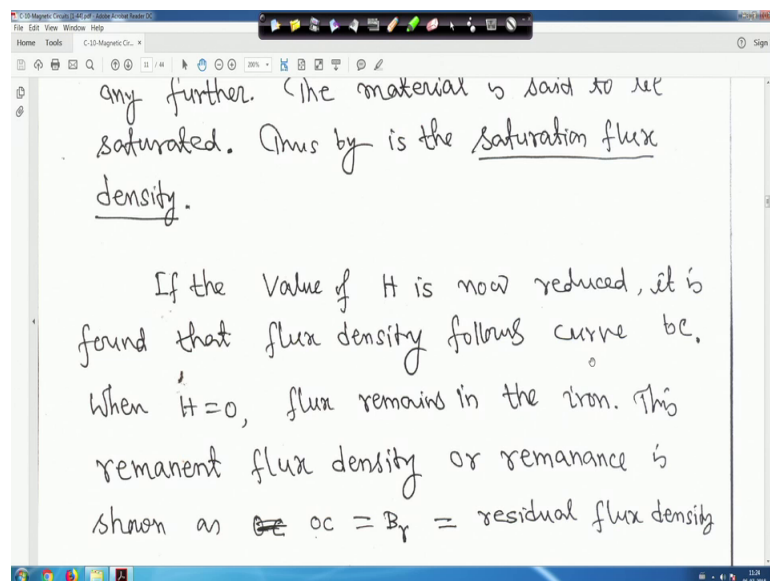 C-10-Magnetic Circuits (1-44).pdf - Adobe Acrobat Reader DC
File Edit View Window Help
Home Tools C-10-Magnetic Cir... × Sign
11 / 44 200%
any further. The material is said to be
saturated. Thus by is the saturation flux
density.
If the value of H is now reduced, it is
found that flux density follows curve bc.
When H=0, flux remains in the iron. This
remanent flux density or remanance is
shown as oc = Br = residual flux density
11:24